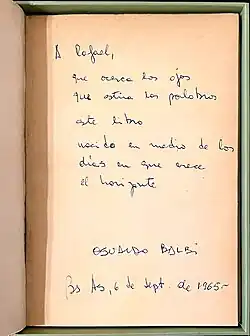 A Rafael,
que acerca los ojos
que estira las palabras
este libro
nacido en medio de los
días en que crece
el horizonte
OSVALDO BALBI
Bs As, 6 de sept. de 1965-